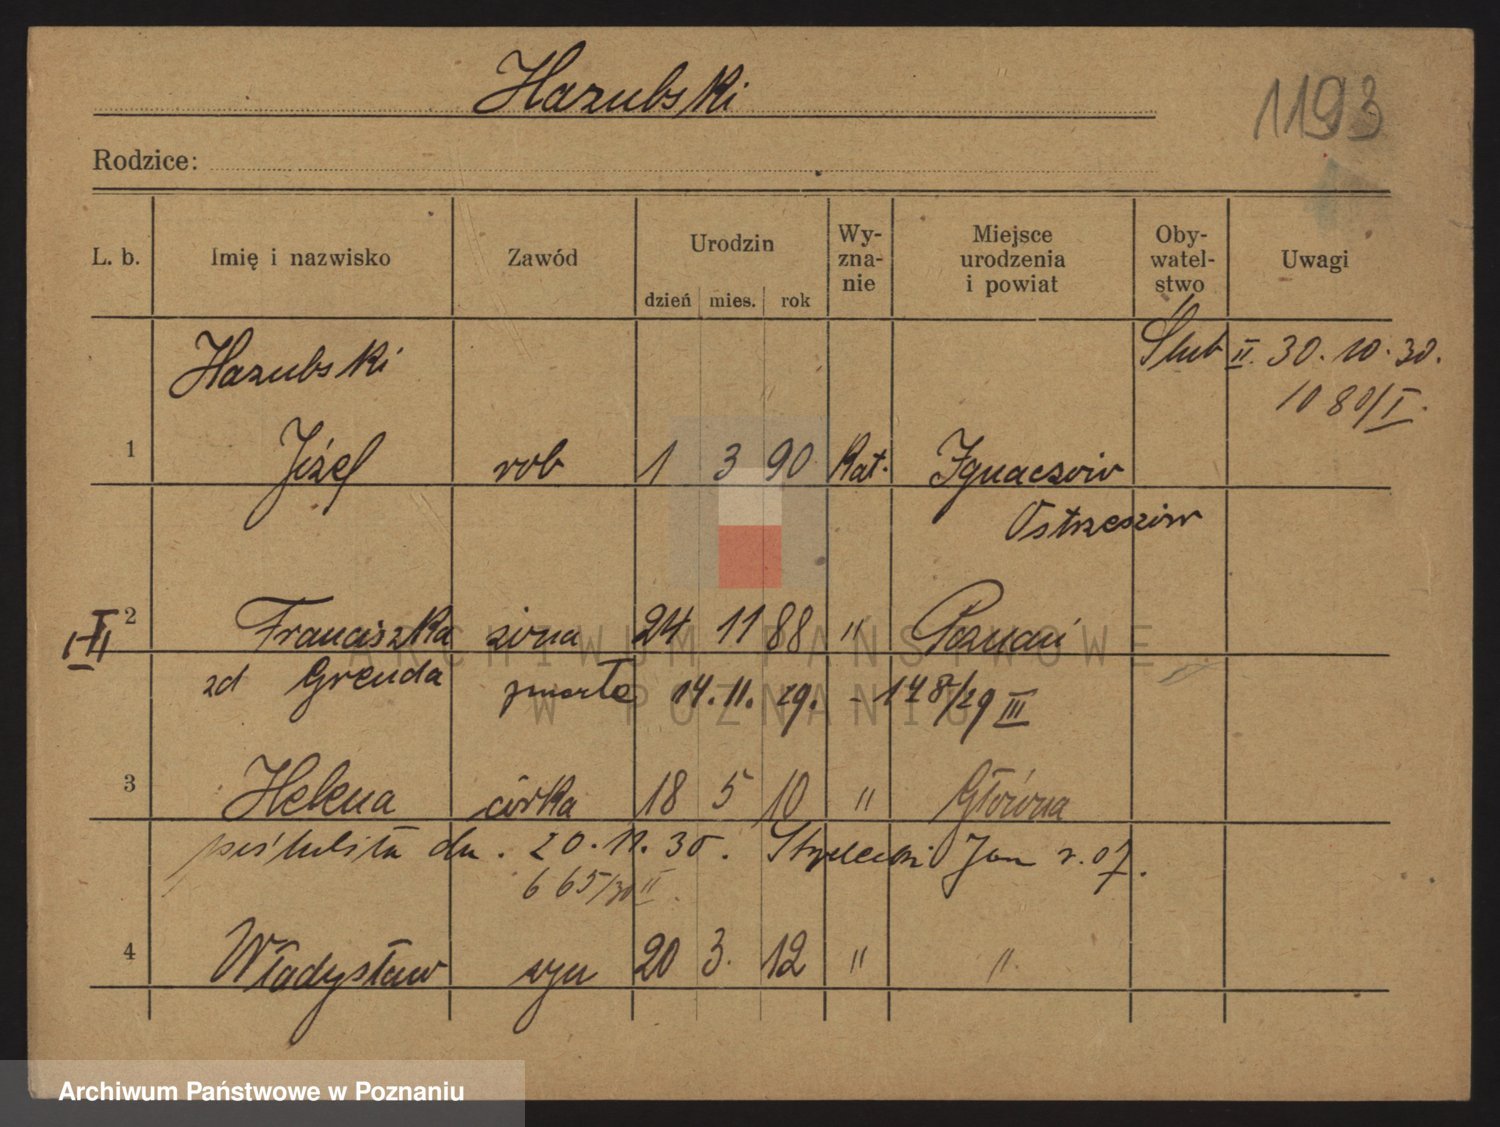 Hazubski
1193
Rodzice:
L. b. Imię i nazwisko Zawód Urodzin dzień mies. rok Wy-zna-nie Miejsce urodzenia i powiat Oby-watel-stwo Uwagi
Hazubski Ślub II. 30. 10. 30.
1080/I.
1 Józef rob 1 3 90 kat. Ignaczów
Ostrzeszów
I-II 2 Franciszka żona 24 11 88 " Poznań
zd Grenda zmarła 14. 11. 29. - 178/29 III
3 Helena córka 18 5 10 " Główna
poślubiła dn. 20. 11. 30. Jan r. 07.
665/30 II.
4 Władysław syn 20 3. 12 " "
ARCHIWUM PAŃSTWOWE
W POZNANIU
Archiwum Państwowe w Poznaniu